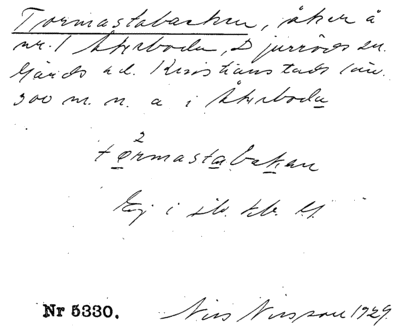 Tormastabacken, åker å
nr. 1 Åkeboda, Djurröds sn.
Gärds hd. Kristianstads län.
300 m. n. a i Åkeboda
tormastabakan
Ej i
Nr 5330. Nils Nilsson 1929